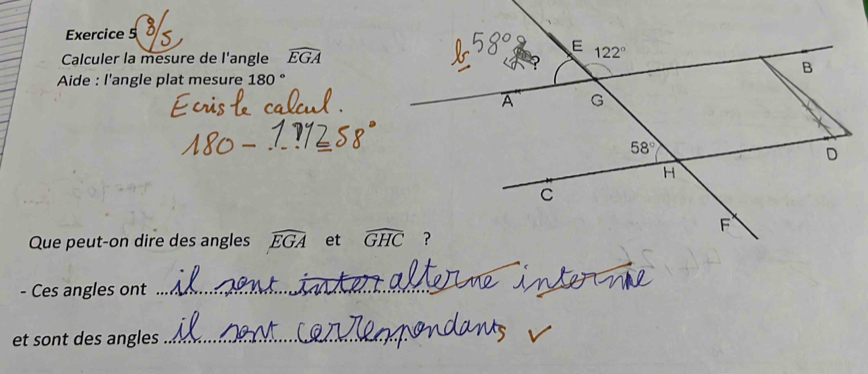 Exercice 5 3/5
Calculer la mesure de l'angle EGA
Aide : l'angle plat mesure 180 °
Ecris le calcul.
180 - 122 = 58°
b 58° ?
E 122°
B
A
G
58°
H
D
C
F
Que peut-on dire des angles EGA et GHC ?
- Ces angles ont il sont inter alterne interne
et sont des angles il sont correspondants